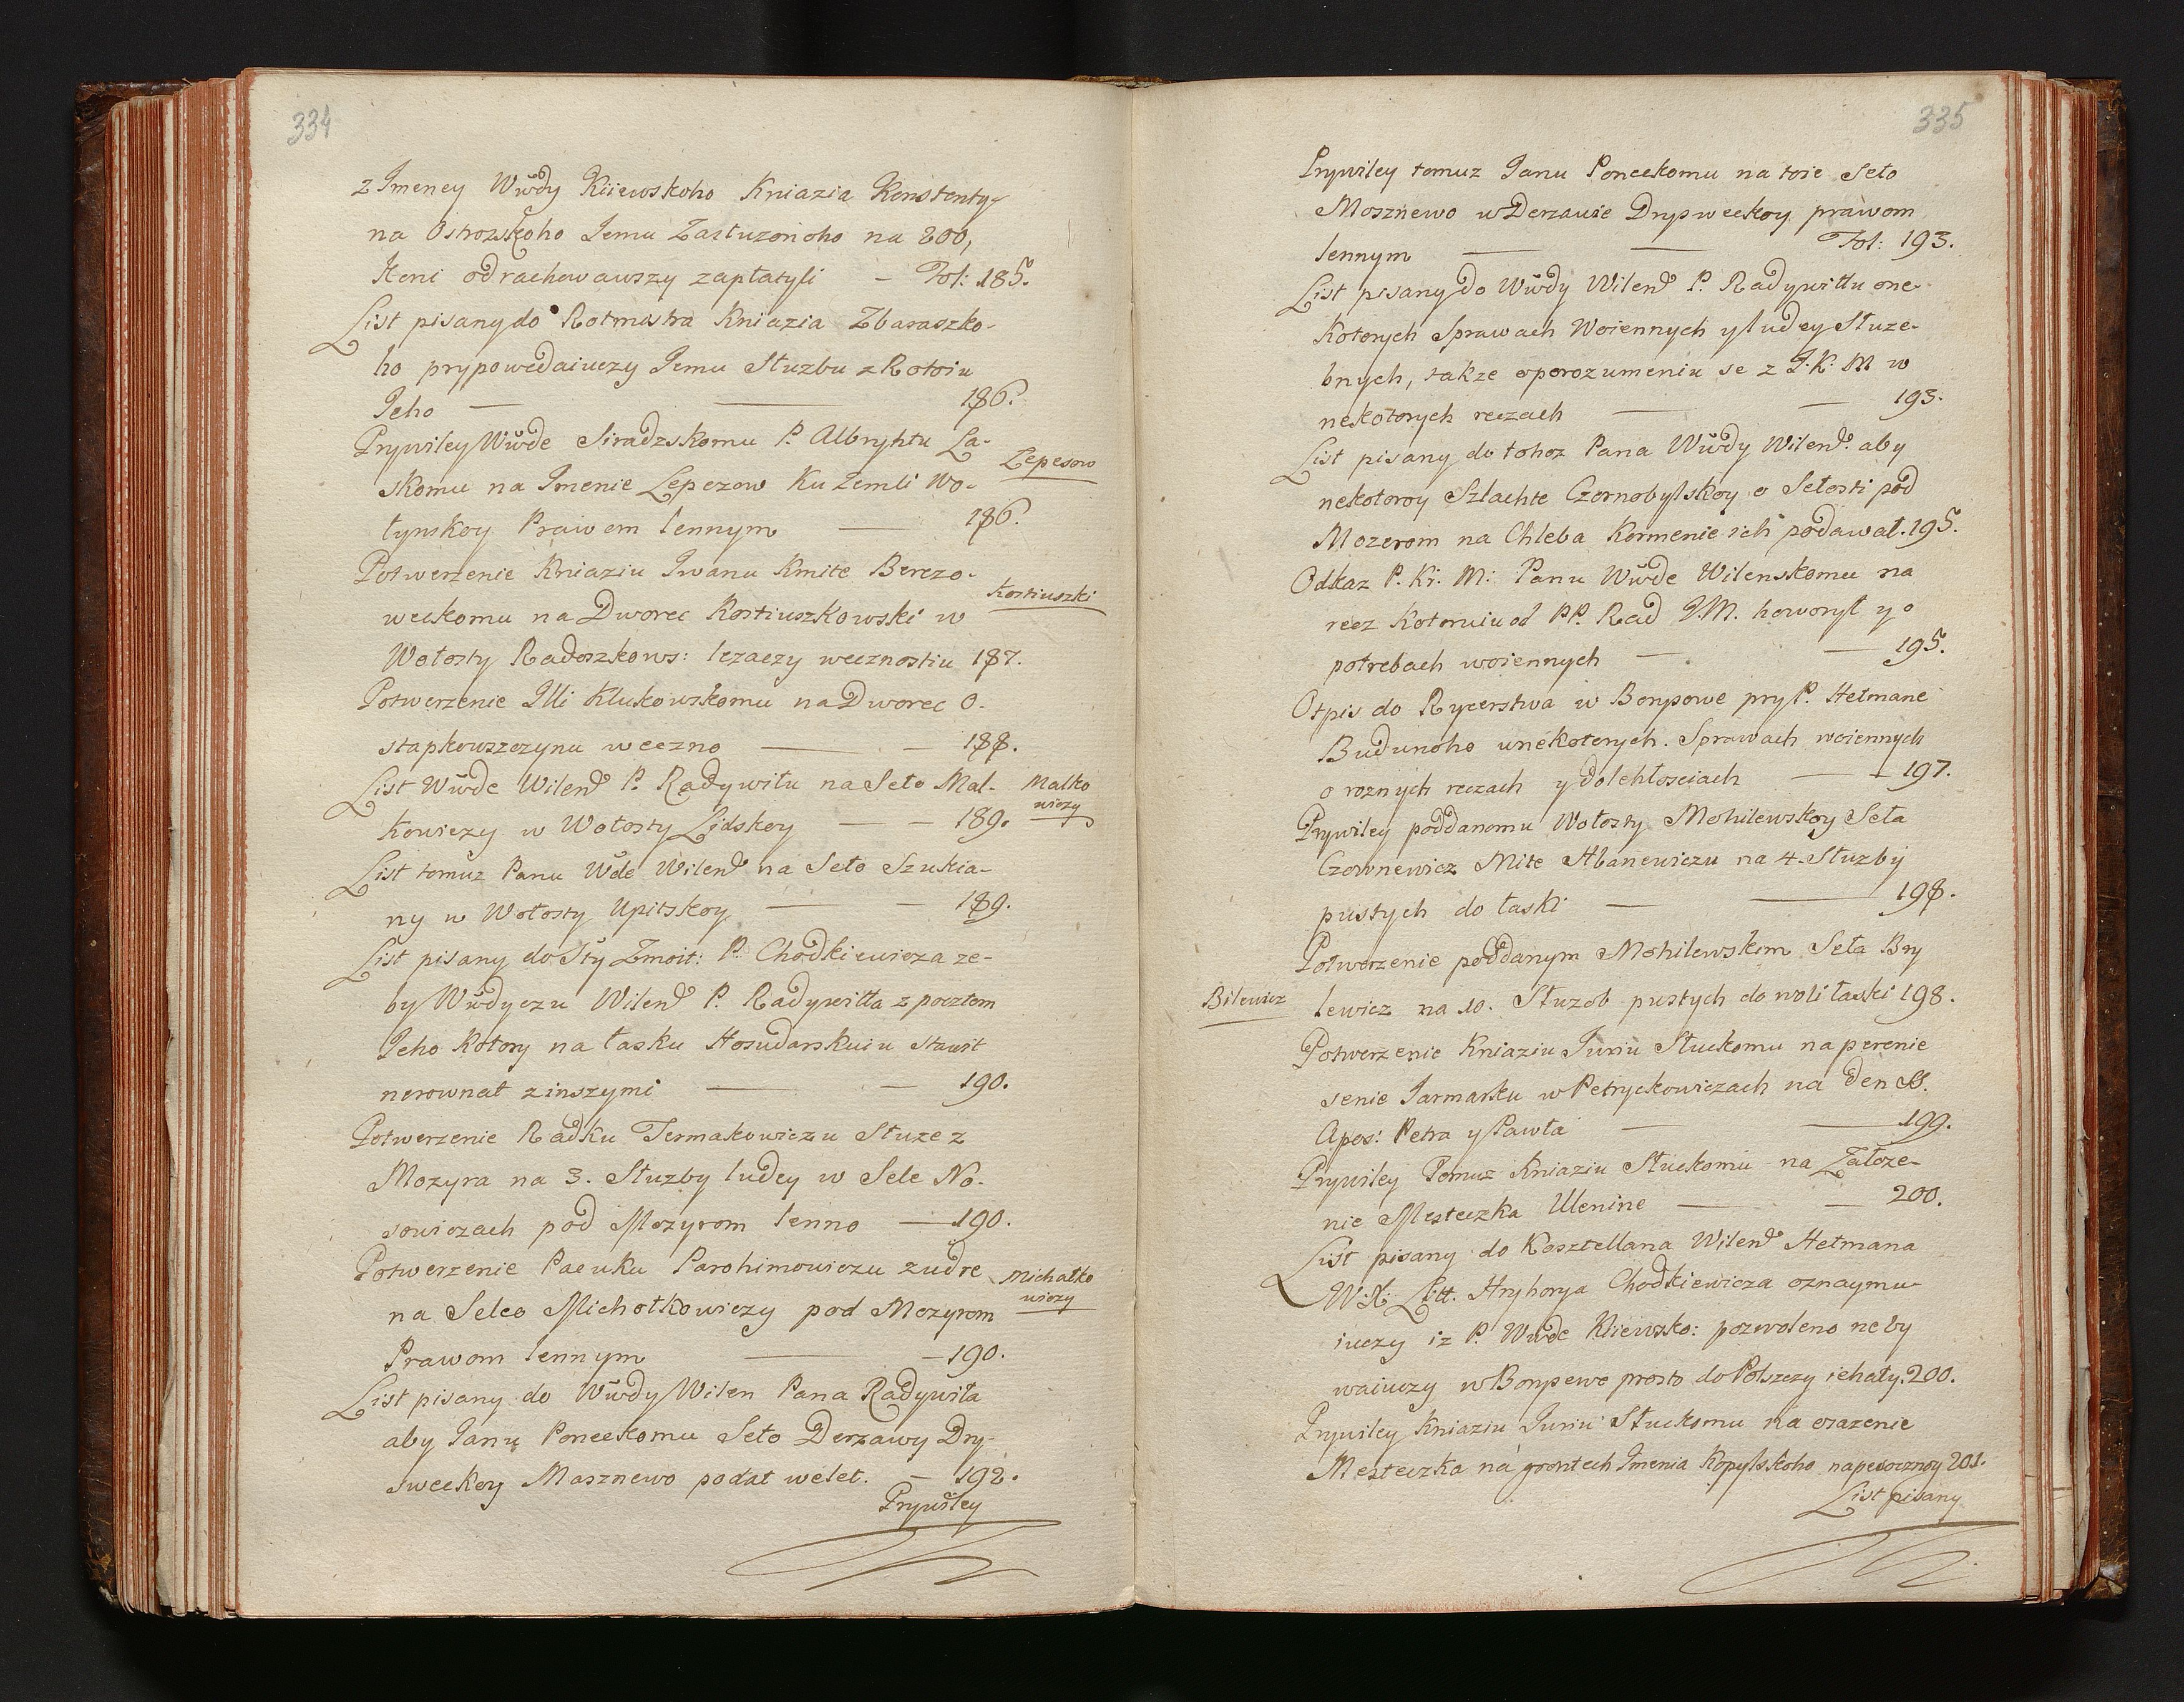 334
z Imeney Wwdy Kiiewskoho Kniazia Konstenty-
na Ostrozskoho Jemu Zasłuzonoho na 200,
Koni odrachowawszy zapłatyli — Fol: 185.
List pisany do Rotmistra Kniazia Zbaraszko-
ho prypowedaiuczy Jemu Słuzbu z Rotoiu
Jeho — — 186.
Prywiley Wwde Siradzskomu P. Albryhtu La-
skomu na Imenie Lepezow Ku Zemli Wo-
Lepesow
łynskoy Prawom lennym — 186.
Potwerzenie Kniaziu Iwanu Kmite Berezo-
weckomu na Dworec Kostiuszkowski w
Kostiuszki
Wołosty Radoszkows: lezaczy wecznostiu 187.
Potwerzenie Illi Klukowskomu na Dworec O-
stapkowszczynu weczno — — 188.
List Wwde Wilend P. Radywiłu na Seło Mal-
Malko
wiczy
kowiczy w Wołosty Lidskoy — — 189.
List tomuz Panu Wde Wilend na Seło Szukia-
ny w Wołosty Upitskoy — — 189.
List pisany do Sty Zmoit: P. Chodkiewicza ze-
by Wwdyczu Wilend P. Radywiłła z pocztom
Jeho Kotory na łasku Hosudarskuiu stawit
nerownał z inszymi — — 190.
Potwerzenie Radku Jermakowiczu Słuze z
Mozyra na 3. Słuzby ludey w Sele No-
sowiczach pod Mozyrom lenno — 190.
Potwerzenie Pacuku Parohimowiczu zudre
Michałko
wiczy
na Selco Michołkowiczy pod Mozyrom
Prawom lennym — — 190.
List pisany do Wwdy Wilen Pana Radywiła
aby Janu Poneckomu Seło Derzawy Dry-
sweckoy Masznewo podał welet. — 192.
Prywiley
335
Prywiley tomuz Janu Poneckomu na toie Seło
Mosznewo w Derzawie Drysweckoy prawom
lennym — — Fol: 193.
List pisany do Wwdy Wilend P. Radywiłłu o ne-
kotorych Sprawach Woiennych y ludey Słuze-
bnych, takze o porozumeniu se z J. K. M w
nekotorych reczach — — 193.
List pisany do tohoz Pana Wwdy Wilend. aby
nekotoroy Szlachte Czornobylskoy o Sełosti pod
Mozerom na Chleba Kormenie ich podawał. 195.
Odkaz P. Kr. M: Panu Wwde Wilenskomu na
recz Kotoruiu od PP. Rad J.M. howorył y o
potrebach woiennych — — 195.
Otpis do Rycerstwa w Borysowe pry P. Hetmane
Budunoho w nekotorych Sprawach woiennych
o roznych reczach y dolehłosciach — 197.
Prywiley poddanomu Wołosty Mohilewskoy Seła
Czownewicz Mite Abanewiczu na 4. Słuzby
pustych do łaski — — 198.
Potwerzenie poddanym Mohilewskim Seła Bry
Bilewicz
lewicz na 10. Słuzob pustych do woli łaski 198.
Potwerzenie Kniaziu Juriu Słuckomu na perenie
senie Jarmarku w Petryckowiczach na Den SS.
Apos: Petra y Pawła — — 199.
Prywiley Tomuz Kniaziu Słuckomu na Załoze-
nie Mesteczka Ulenine — — 200.
List pisany do Kasztellana Wilend Hetmana
W. X. Litt. Hryhorya Chodkiewicza oznaymu-
iuczy iz P. Wwde Kiiewsko: pozwoleno neby
waiuczy w Borysewe prosto do Polszczy iehaty. 200.
Prywiley Kniaziu Juriu Słuckomu na osazenie
Mesteczka na grontech Imenia Kopylskoho na pesocznoy 201.
List pisany